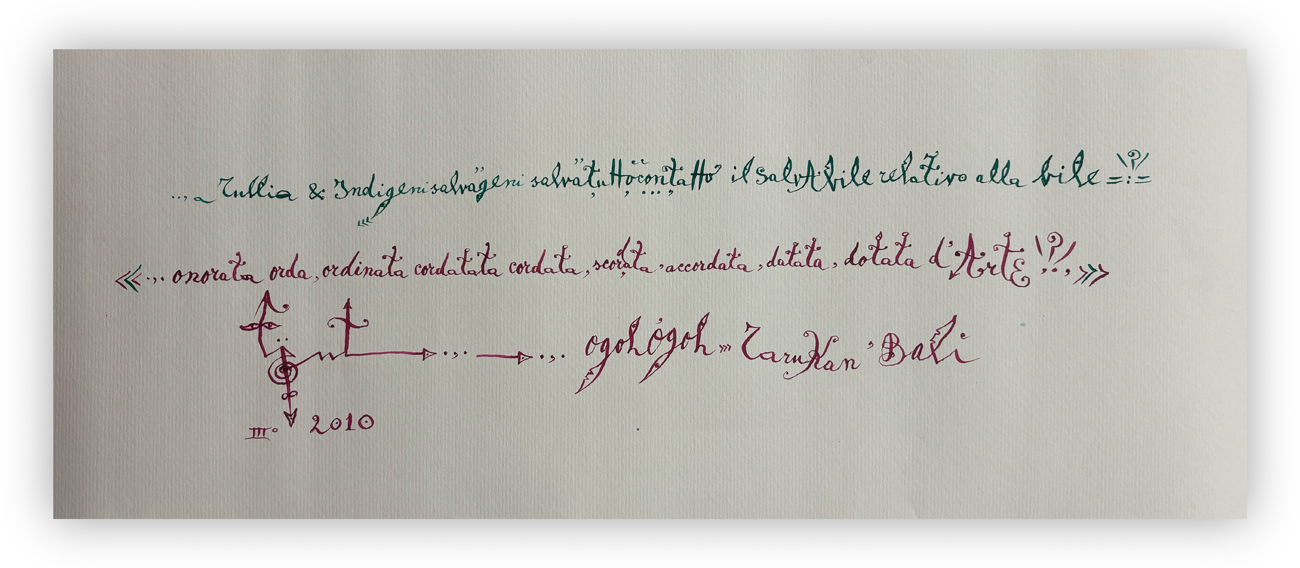 ... Tullia & Indigeni salvageni salvatuttocontatto il salvAbile relativo alla bile =!?!=
«... onorata orda, ordinata cordatata cordata, scordata, accordata, datata, dotata d'ArtE !?!, »»
ogohògoh »» TaruKan, Bali
III° 2010